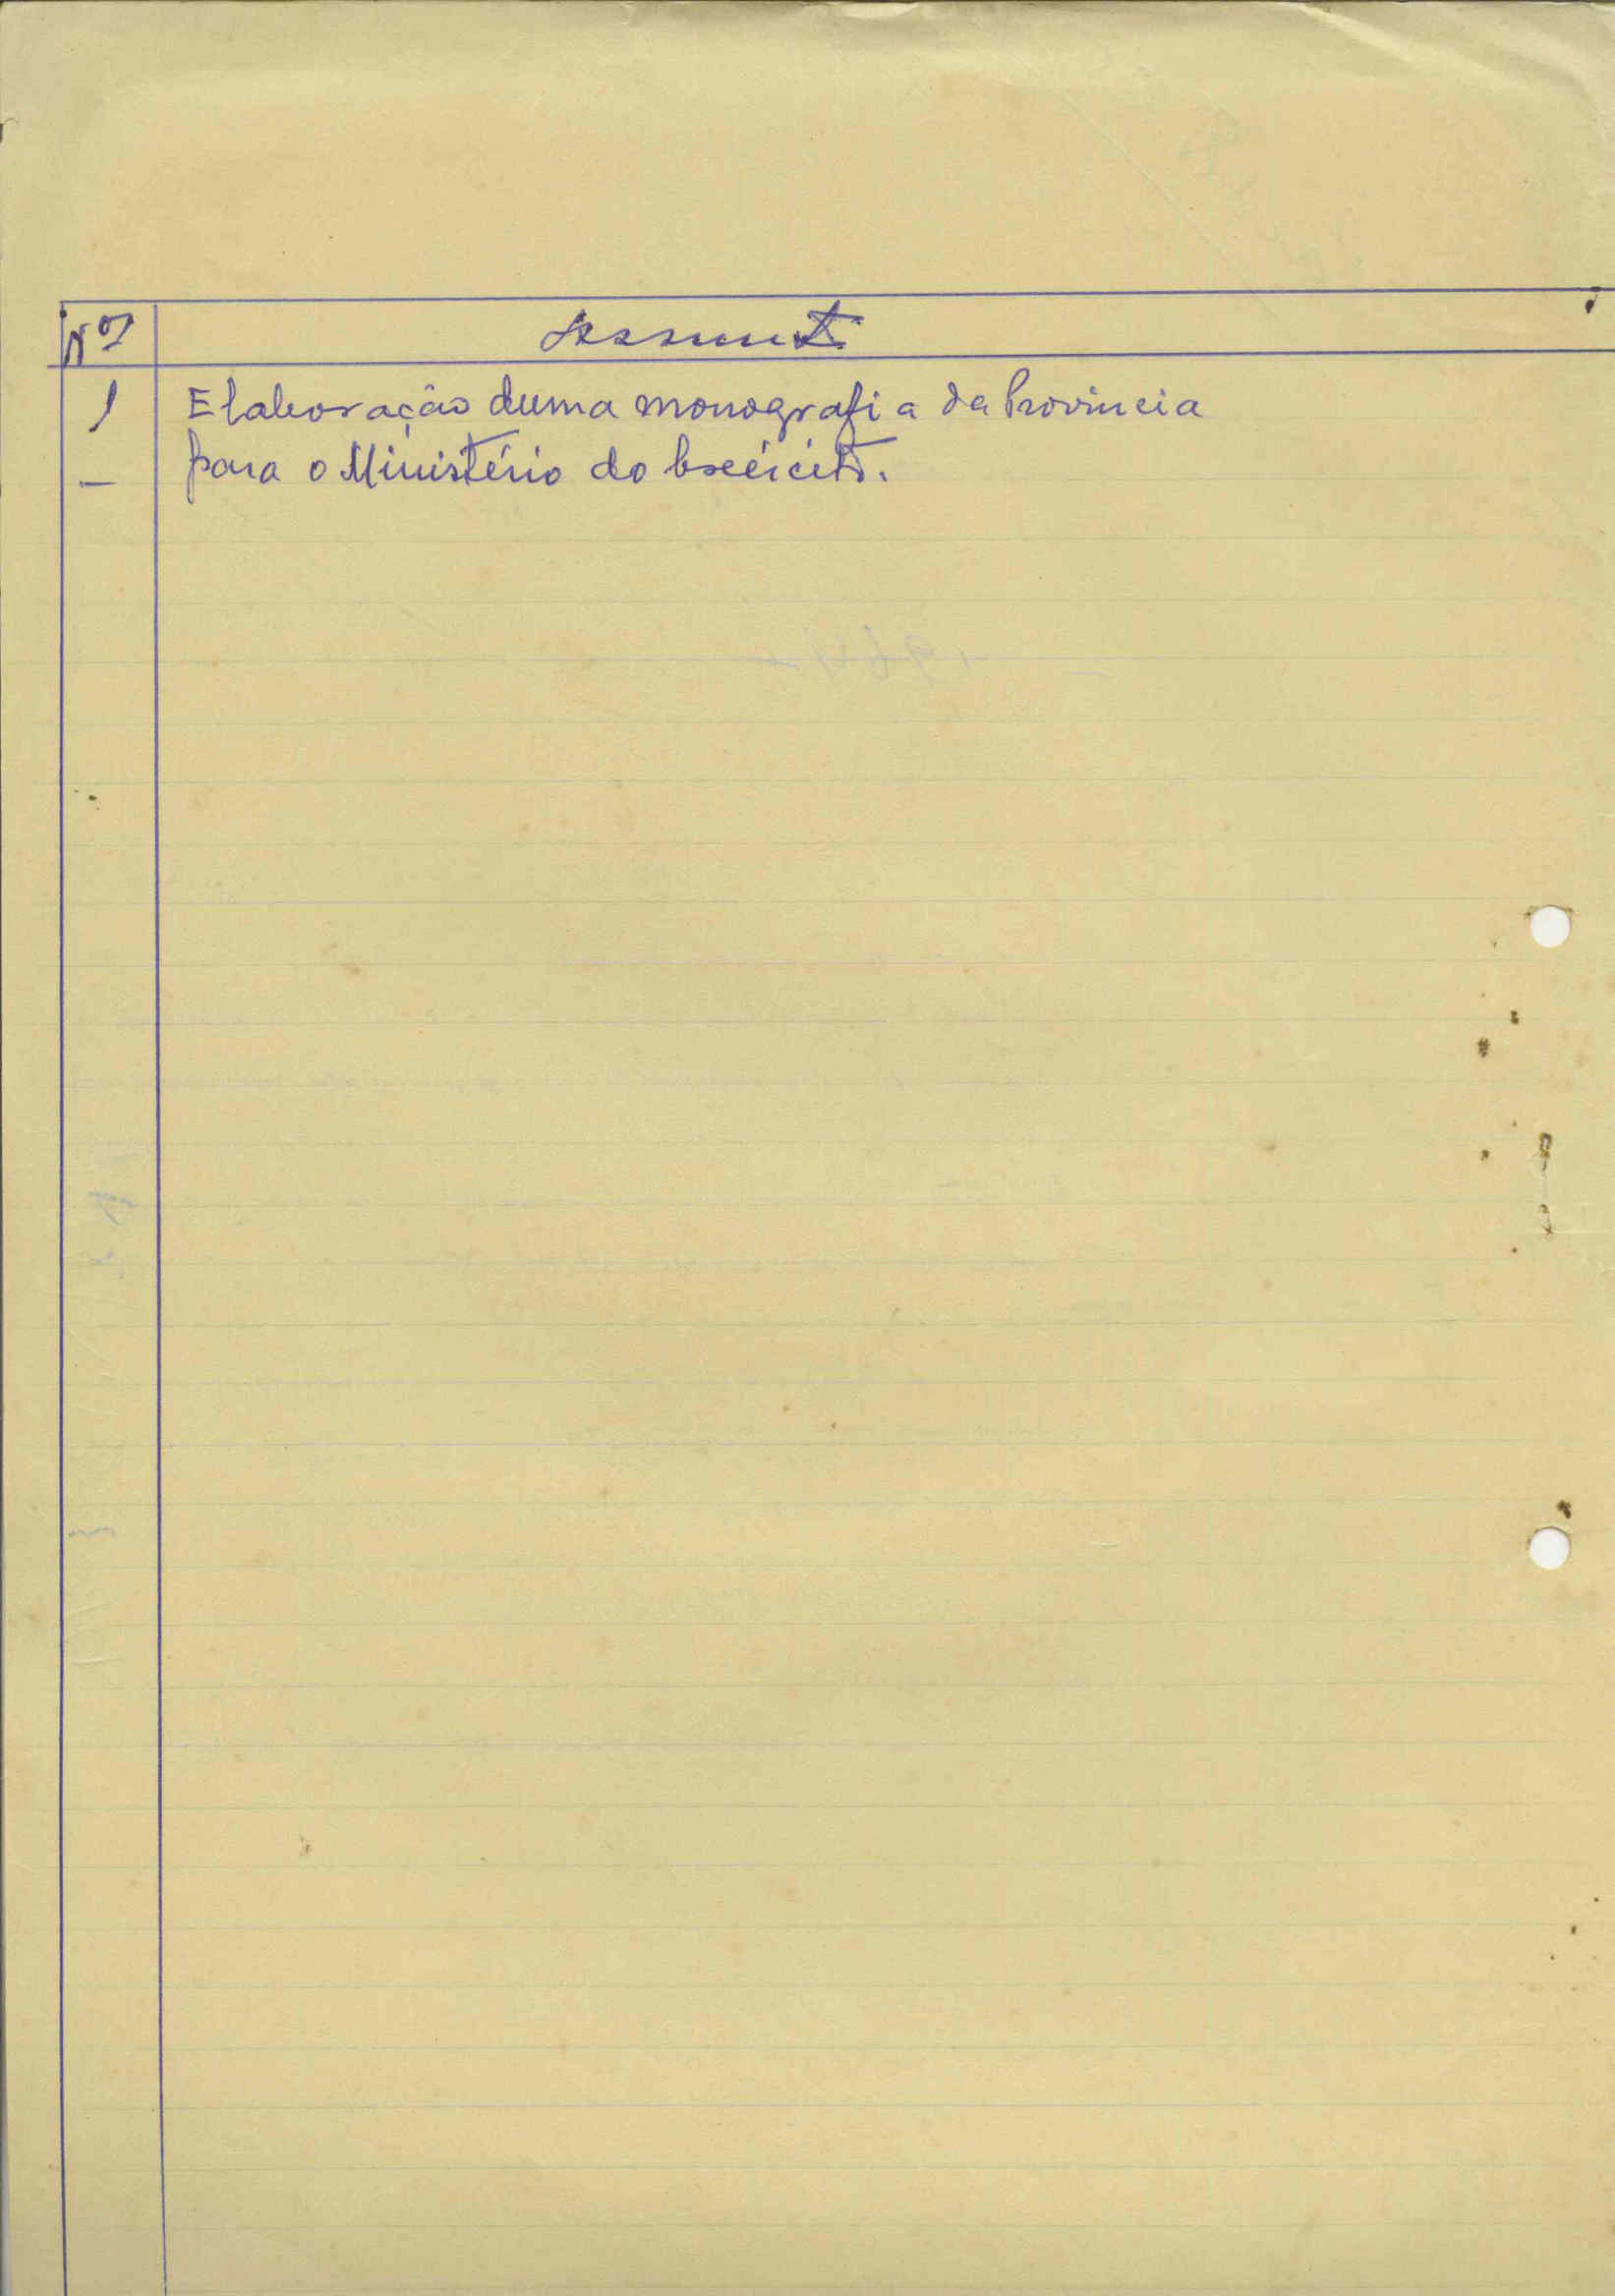 Nos Assunto
1 Elaboração duma monografia da Provincia
— para o Ministério do Exército.